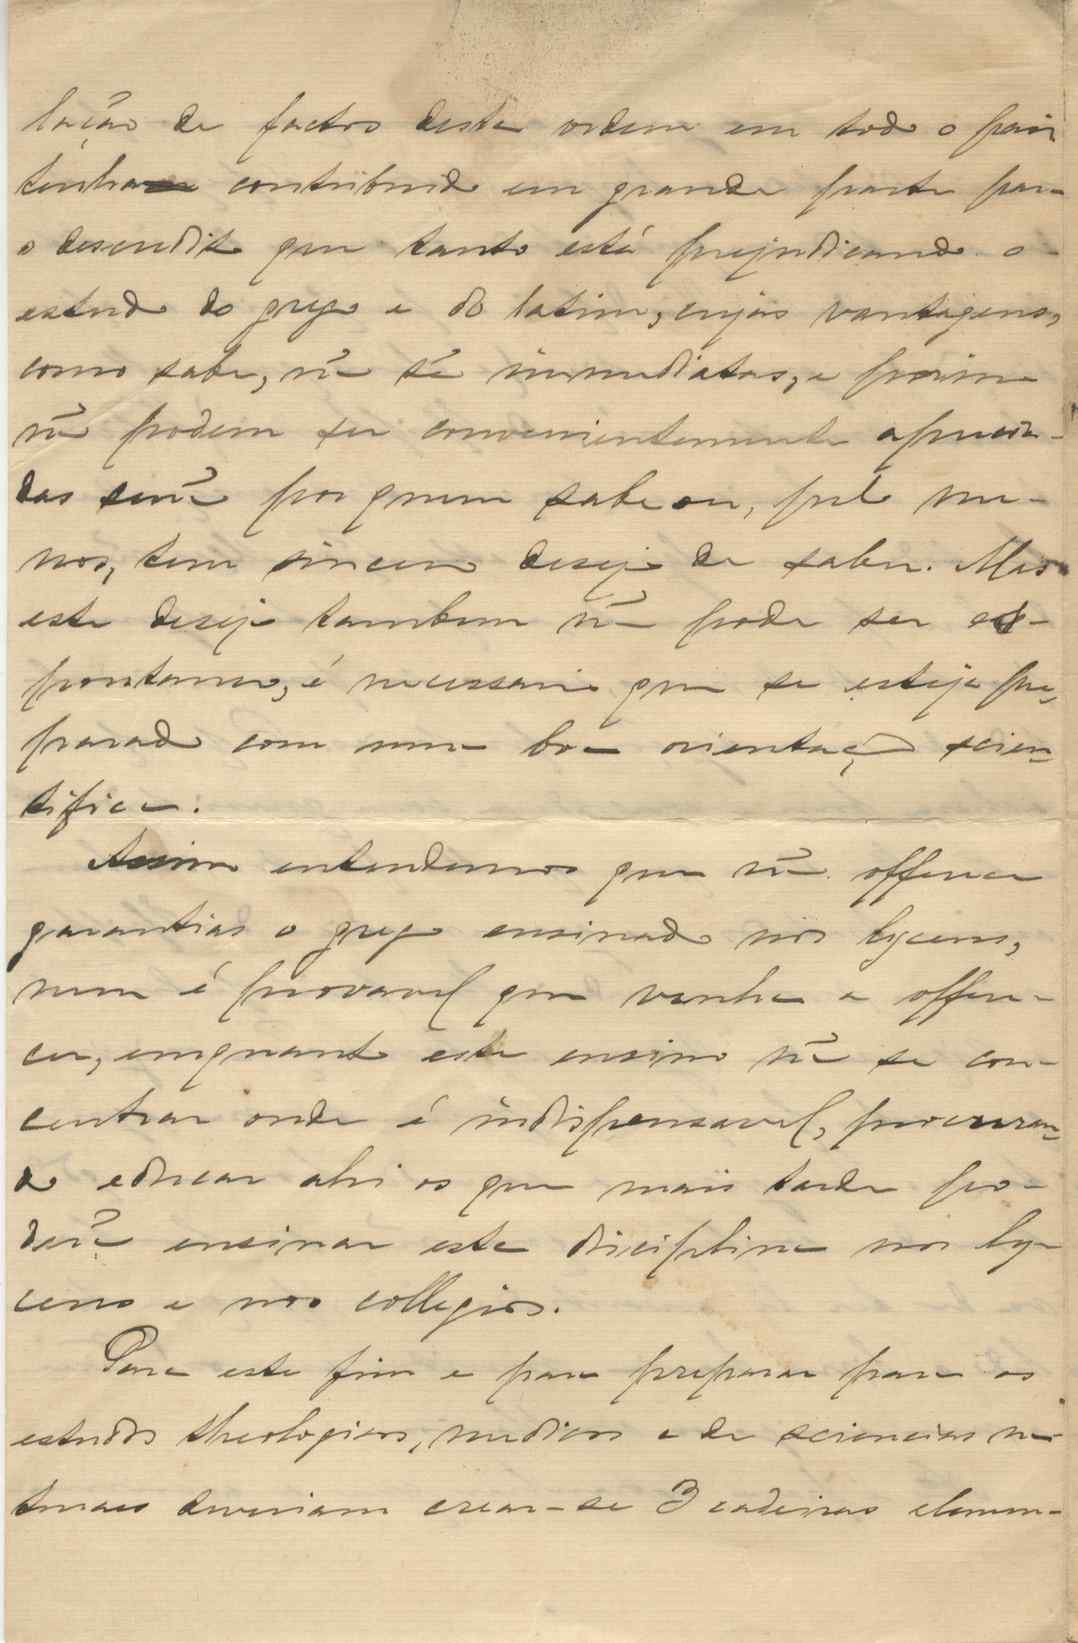 lação de factos desta ordem em todo o paiz
tenha contribuido em grande parte para
o descredito que tanto está prejudicando o
estudo do grego e do latim, cujas vantagens,
como sabe, nã sã immediatas, e porisso
nã podem ser convenientemente aprecia-
das senã por quem sabe ou, pelo me-
nos, tem sincero desejo de saber. Mas
este desejo tambem nã pode ser es-
pontaneo, é necessario que se esteja pre-
parado com uma boa orientaçã scien-
tifica.
Assim entendemos que nã offerece
garantias o grego ensinado nos lyceus,
nem é provavel que venha a offere-
cer, emquanto este ensino nã se con-
centrar onde é indispensavel, procuran-
do educar ahi os que mais tarde po-
derã ensinar esta disciplina nos ly-
ceus e nos collegios.
Para este fim e para preparar para os
estudos theologicos, medicos e de sciencias na-
turaes deveriam crear-se 3 cadeiras elemen-